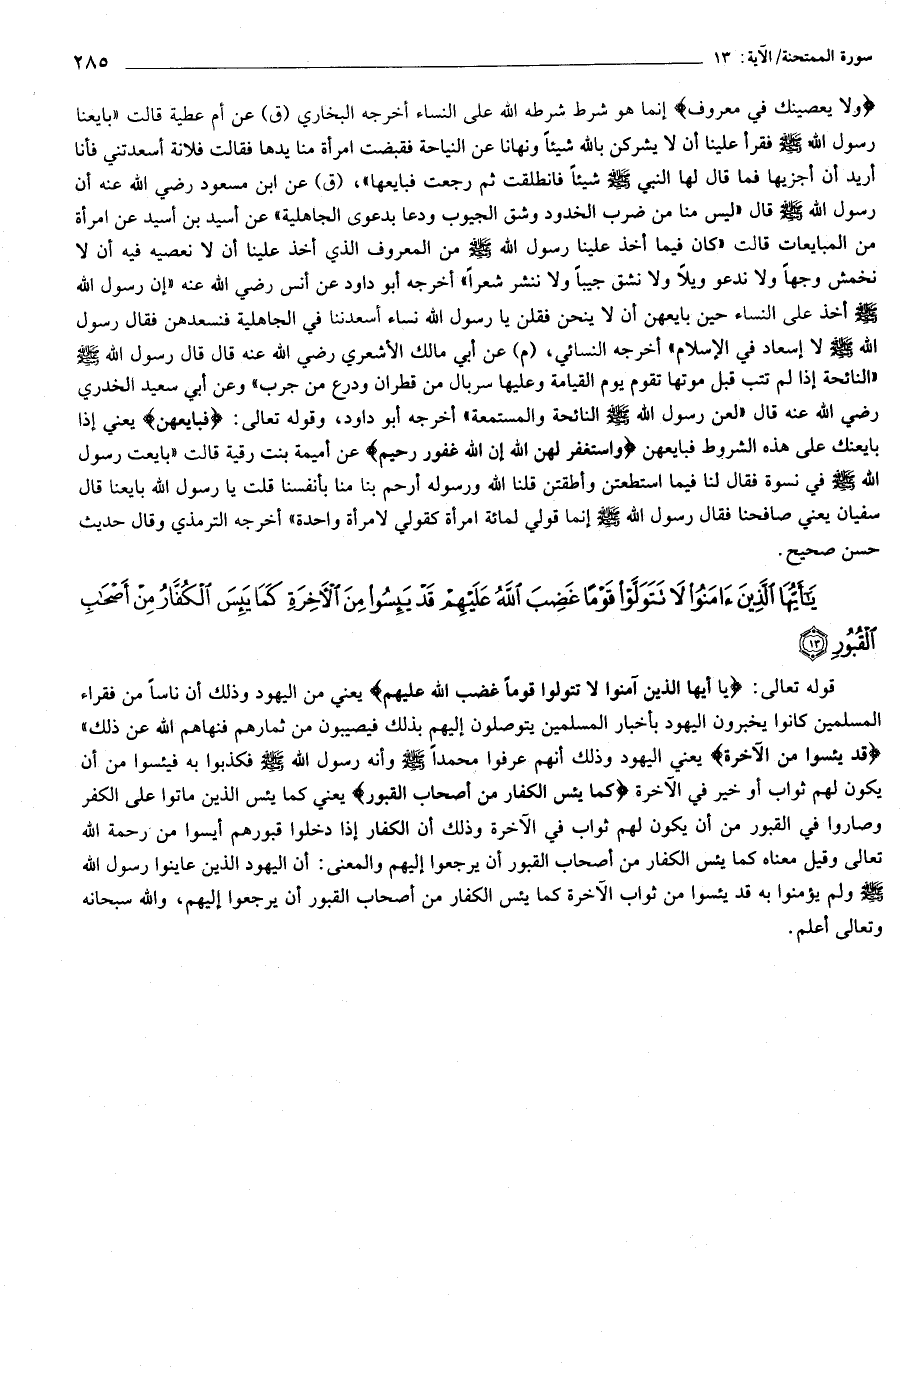 سورة الممتحنة/ الآية: ١٣ ٢٨٥
﴿ولا يعصينك في معروف﴾ إنما هو شرط شرطه الله على النساء أخرجه البخاري (ق) عن أم عطية قالت «بايعنا
رسول الله ﷺ فقرأ علينا أن لا يشركن بالله شيئاً ونهانا عن النياحة فقبضت امرأة منا يدها فقالت فلانة أسعدتني فأنا
أريد أن أجزيها فما قال لها النبي ﷺ شيئاً فانطلقت ثم رجعت فبايعها»، (ق) عن ابن مسعود رضي الله عنه أن
رسول الله ﷺ قال «ليس منا من ضرب الخدود وشق الجيوب ودعا بدعوى الجاهلية» عن أسيد بن أسيد عن امرأة
من المبايعات قالت «كان فيما أخذ علينا رسول الله ﷺ من المعروف الذي أخذ علينا أن لا نعصيه فيه أن لا
نخمش وجهاً ولا ندعو ويلاً ولا نشق جيباً ولا ننشر شعراً» أخرجه أبو داود عن أنس رضي الله عنه «إن رسول الله
ﷺ أخذ على النساء حين بايعهن أن لا ينحن فقلن يا رسول الله نساء أسعدننا في الجاهلية فنسعدهن فقال رسول
الله ﷺ لا إسعاد في الإسلام» أخرجه النسائي، (م) عن أبي مالك الأشعري رضي الله عنه قال قال رسول الله ﷺ
«النائحة إذا لم تتب قبل موتها تقوم يوم القيامة وعليها سربال من قطران ودرع من جرب» وعن أبي سعيد الخدري
رضي الله عنه قال «لعن رسول الله ﷺ النائحة والمستمعة» أخرجه أبو داود، وقوله تعالى: ﴿فبايعهن﴾ يعني إذا
بايعنك على هذه الشروط فبايعهن ﴿واستغفر لهن الله إن الله غفور رحيم﴾ عن أميمة بنت رقية قالت «بايعت رسول
الله ﷺ في نسوة فقال لنا فيما استطعتن وأطقتن قلنا الله ورسوله أرحم بنا منا بأنفسنا قلت يا رسول الله بايعنا قال
سفيان يعني صافحنا فقال رسول الله ﷺ إنما قولي لمائة امرأة كقولي لامرأة واحدة» أخرجه الترمذي وقال حديث
حسن صحيح.
يَٰٓأَيُّهَا ٱلَّذِينَ ءَامَنُوا۟ لَا تَتَوَلَّوْا۟ قَوْمًا غَضِبَ ٱللَّهُ عَلَيْهِمْ قَدْ يَئِسُوا۟ مِنَ ٱلْءَاخِرَةِ كَمَا يَئِسَ ٱلْكُفَّارُ مِنْ أَصْحَٰبِ
ٱلْقُبُورِ ١٣
قوله تعالى: ﴿يا أيها الذين آمنوا لا تتولوا قوماً غضب الله عليهم﴾ يعني من اليهود وذلك أن ناساً من فقراء
المسلمين كانوا يخبرون اليهود بأخبار المسلمين يتوصلون إليهم بذلك فيصيبون من ثمارهم فنهاهم الله عن ذلك»
﴿قد يئسوا من الآخرة﴾ يعني اليهود وذلك أنهم عرفوا محمداً ﷺ وأنه رسول الله ﷺ فكذبوا به فيئسوا من أن
يكون لهم ثواب أو خير في الآخرة ﴿كما يئس الكفار من أصحاب القبور﴾ يعني كما يئس الذين ماتوا على الكفر
وصاروا في القبور من أن يكون لهم ثواب في الآخرة وذلك أن الكفار إذا دخلوا قبورهم أيسوا من رحمة الله
تعالى وقيل معناه كما يئس الكفار من أصحاب القبور أن يرجعوا إليهم والمعنى: أن اليهود الذين عاينوا رسول الله
ﷺ ولم يؤمنوا به قد يئسوا من ثواب الآخرة كما يئس الكفار من أصحاب القبور أن يرجعوا إليهم، والله سبحانه
وتعالى أعلم.